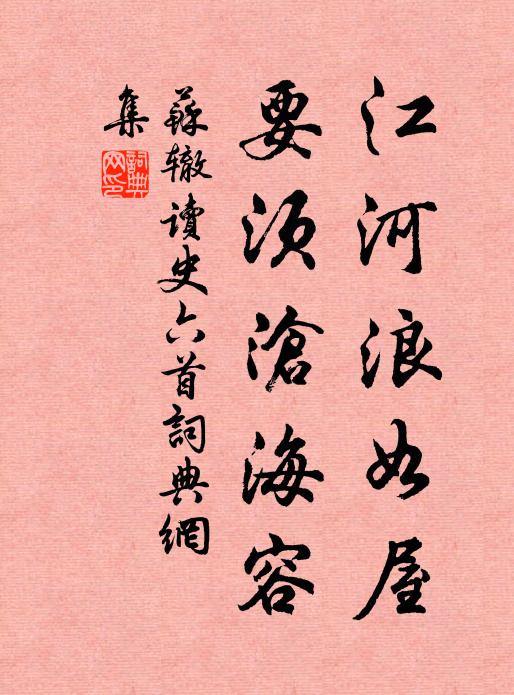 江河浪如屋
要須滄海容
蘇辙讀史六首詞典網
集
詞典网印